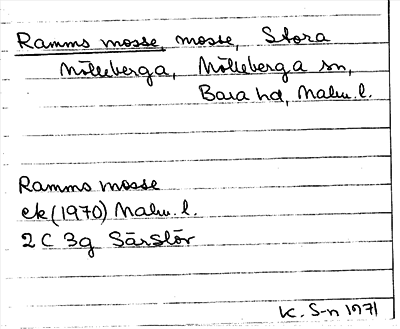 Ramms mosse mosse, Stora
Mölleberga, Mölleberga sn,
Bara hd, Malm. l.
Ramms mosse
ek (1970) Malm. l.
2 C 3g Särslöv
K. S-n 1971